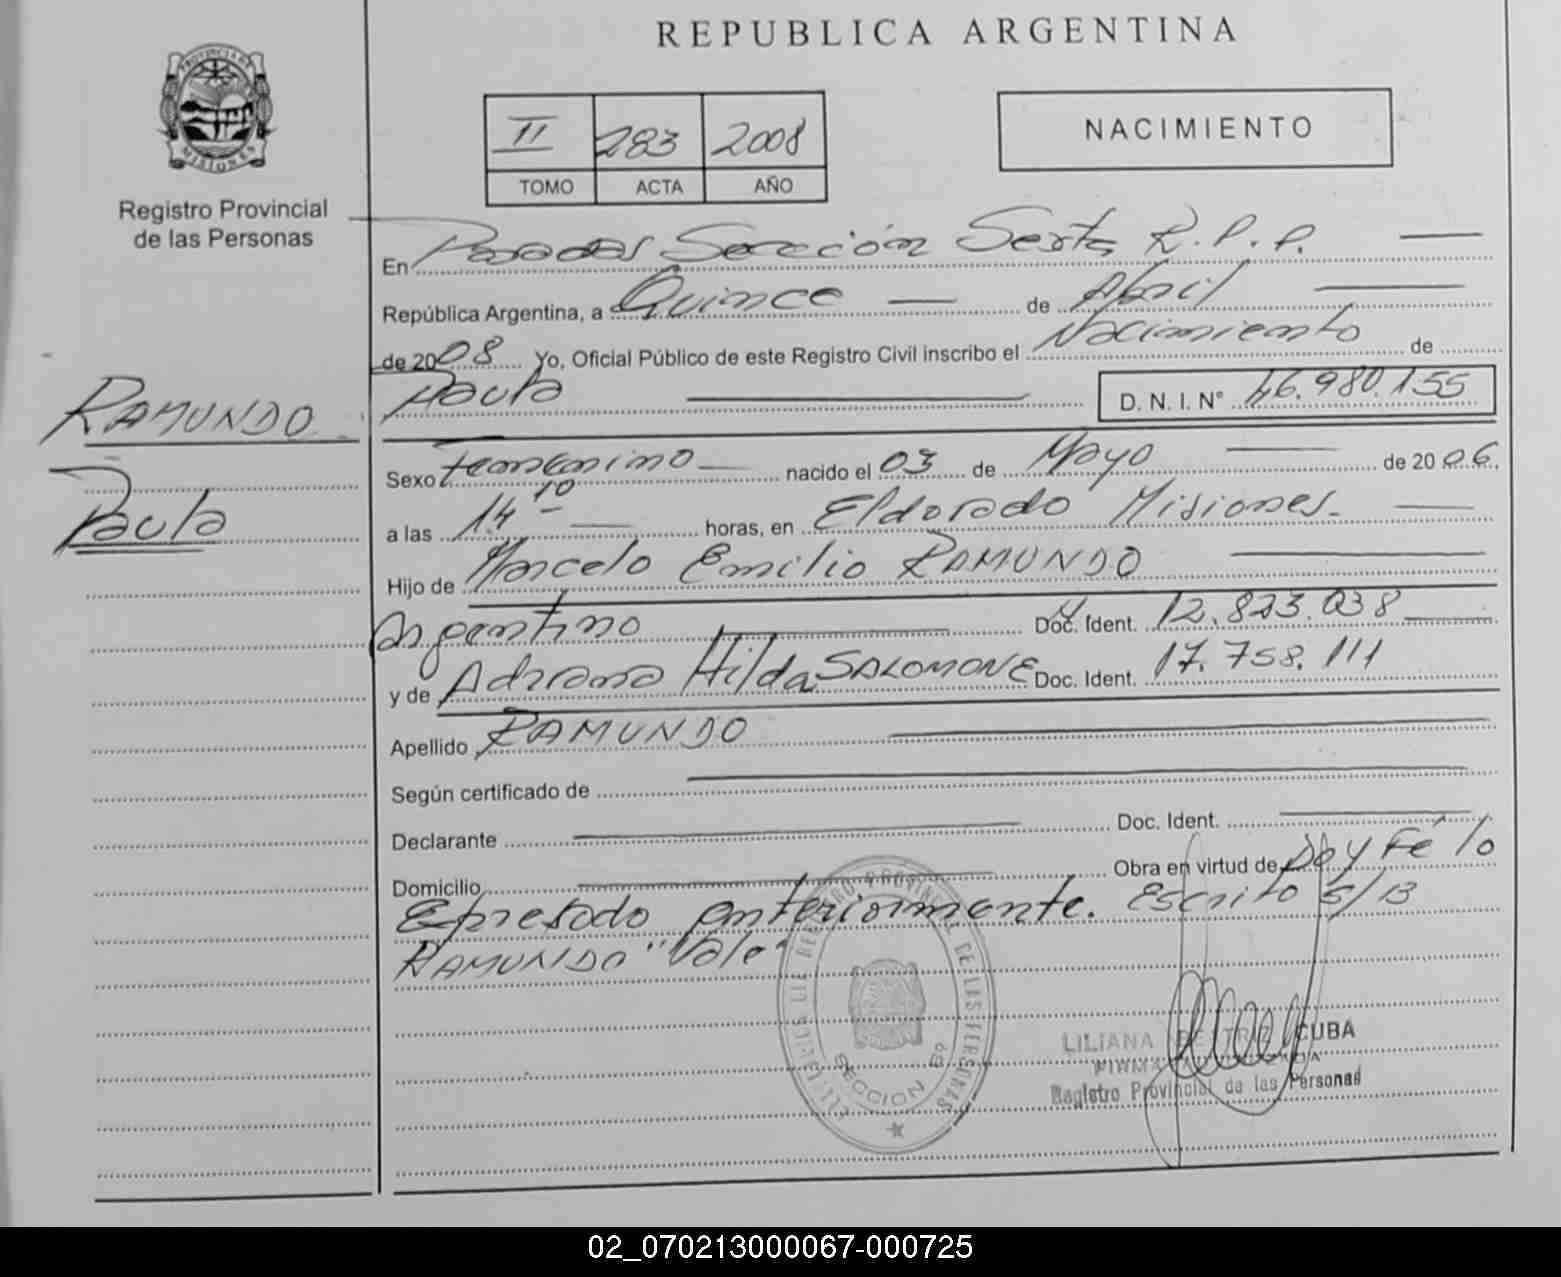 REPUBLICA ARGENTINA
PROVINCIA DE
MISIONES
Registro Provincial
de las Personas
II 283 2008
TOMO ACTA AÑO
NACIMIENTO
En Posadas Sección Sexta R.P.P.
República Argentina, a Quince de Abril
de 2008 Yo, Oficial Público de este Registro Civil inscribo el Nacimiento de
Paula D. N. I. N° 46.980.155
RAMUNDO
Paula
Sexo femenino nacido el 03 de Mayo de 2006.
a las 14 10 horas, en Eldorado Misiones.
Hijo de Marcelo Emilio RAMUNDO
Argentino Doc. Ident. 12.823.038
y de Adriana Hilda SALOMONE Doc. Ident. 17.758.111
Apellido RAMUNDO
Según certificado de
Declarante Doc. Ident.
Domicilio Obra en virtud de Doy Fé lo
Epresado anteriormente. Escrito S/B
RAMUNDO "Vale"
REGISTRO PROVINCIAL DE LAS PERSONAS
SECCION 6º
LILIANA BEATRIZ CUBA
FIRMA AUTORIZADA
Registro Provincial de las Personas
02_070213000067-000725